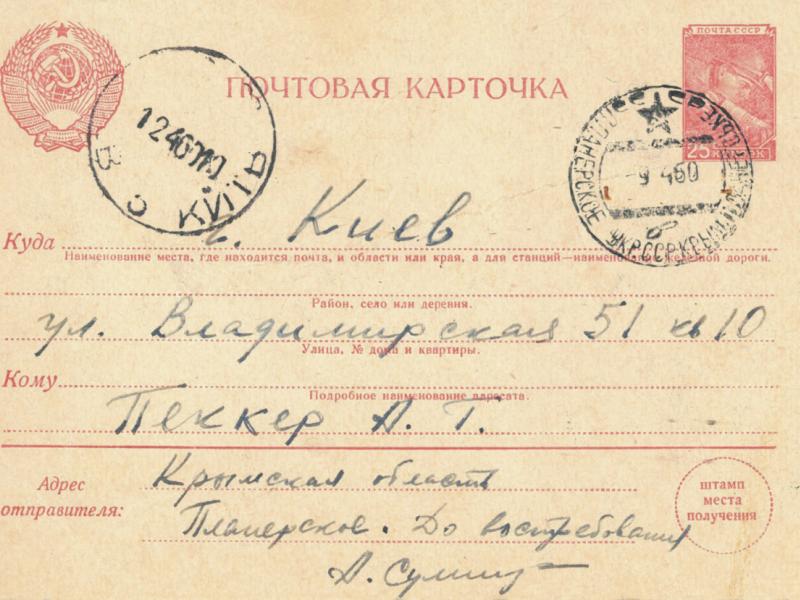 ПОЧТА СССР
ПОЧТОВАЯ КАРТОЧКА
25 КОПЕЕК
КИЇВ
ПЛАНЕРСКОЕ
9 4 60
Куда г. Киев
Наименование места, где находится почта, и области или края, а для станций—наименование железной дороги.
Район, село или деревня.
ул. Владимирская 51 кв 10
Улица, № дома и квартиры.
Кому
Подробное наименование адресата.
Пеккер А. Т.
Адрес отправителя:
Крымская область
Планерское. До востребования
А.
штамп
места
получения